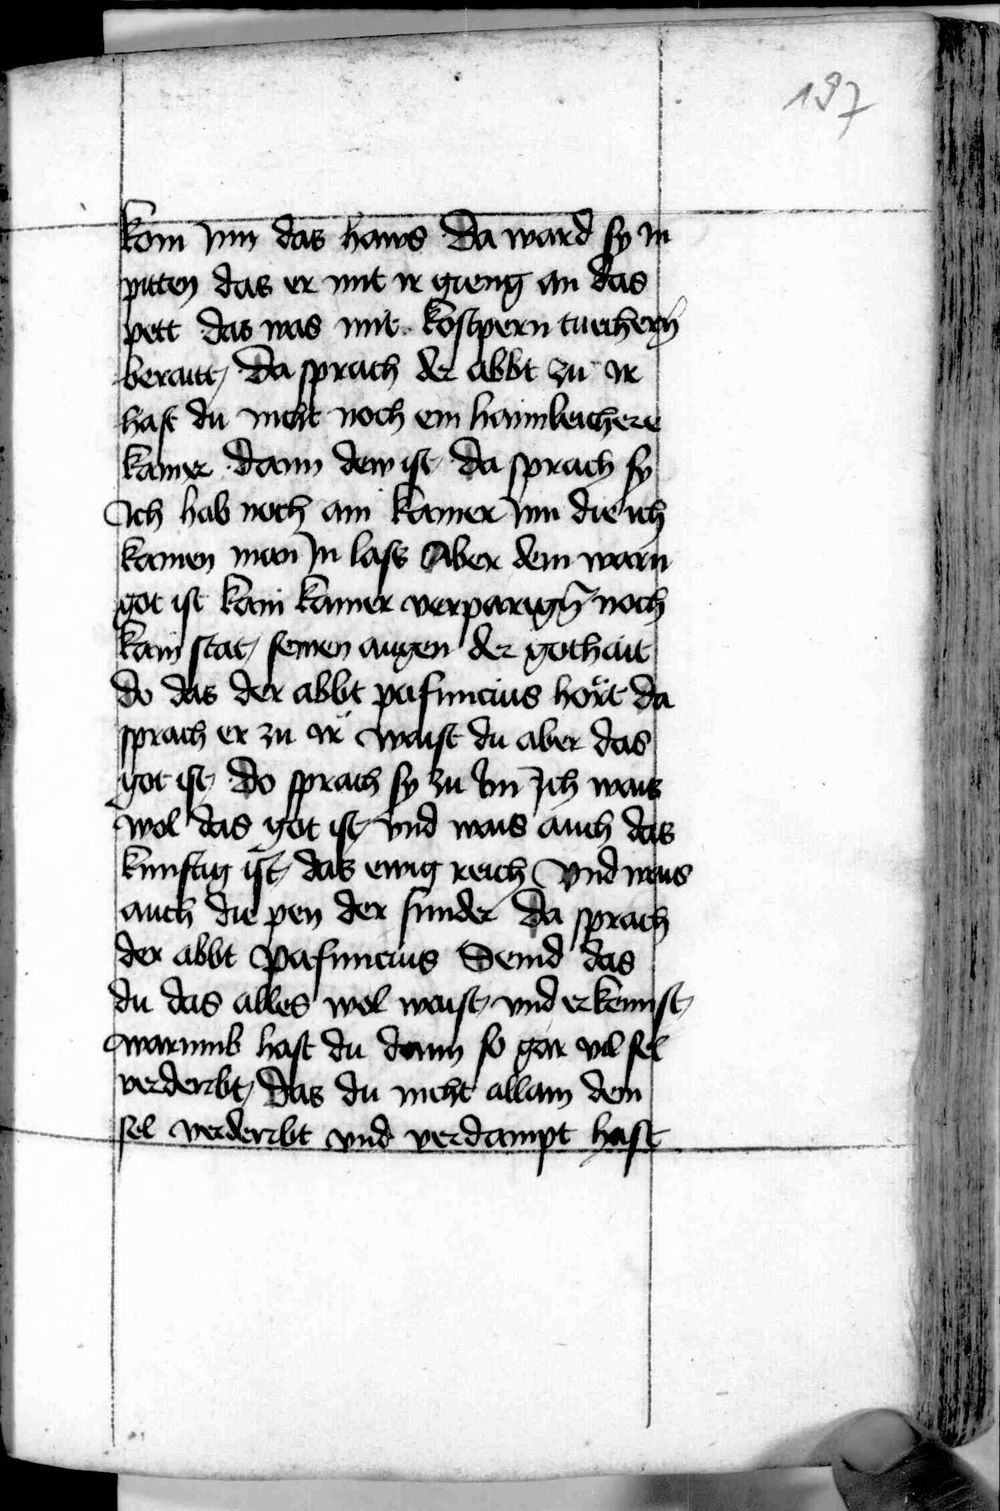 197
kom Inn das haws Da ward sy in
pitten das er mit ir gieng an das
pett das was mit kostpern tuechern
beraitt Da sprach der abbt zu ir
hast du nicht noch ein haimleichere
kamer dann dew ist Da sprach sy
Ich hab noch ain kamer Inn die ich
kainen man In lass Aber dem warn
got ist kain kamer verparign noch
kain stat seinen augen der gothait
do das der abbt pafuncius hört da
sprach er zu ir waist du aber das
got ist Do sprach sy zu Im Ich wais
wol das got ist vnd wais auch das
kunftig ist das ewig reich vnd wais
auch die pen der sunder Da sprach
der abbt pafuncius Seind das
du das alles wol waist vnd erkennst
warumb hast du dann so gar vil sel
verderbt Das du nicht allain dein
sel verderbt vnd verdampt hast